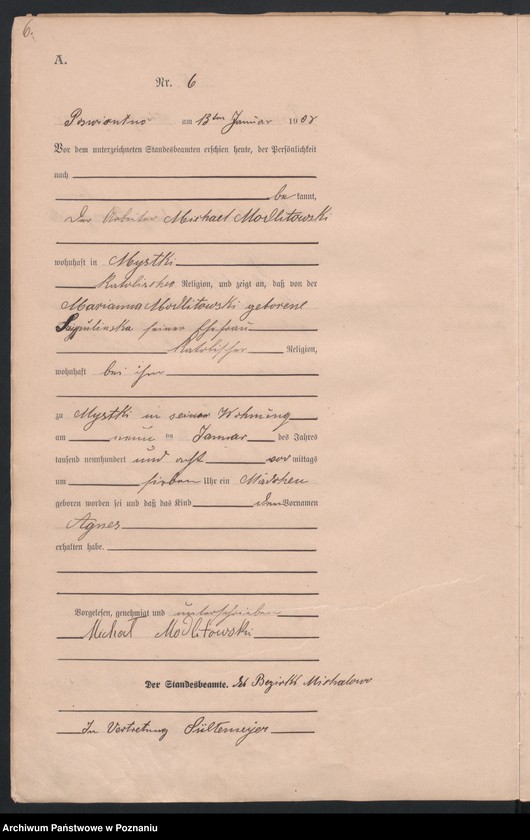 6.
A.
Nr. 6
am 13ten Januar 1908
Vor dem unterzeichneten Standesbeamten erschien heute, der Persönlichkeit
nach
be kannt,
Der Arbeiter Michael Modlitowski
wohnhaft in Mystki
katolischer Religion, und zeigt an, daß von der
Marianna Modlitowski geborene
seiner Ehefrau
katolischer Religion,
wohnhaft bei ihm
zu Mystki in seiner Wohnung
am neun ten Januar des Jahres
tausend neunhundert und acht vor mittags
um sieben Uhr ein Mädchen
geboren worden sei und daß das Kind den Vornamen
Agnes
erhalten habe.
Vorgelesen, genehmigt und unterschrieben
Michał Modlitowski
Der Standesbeamte. des Bezirks Michalowo
In Vertretung Sültemeyer
Archiwum Państwowe w Poznaniu